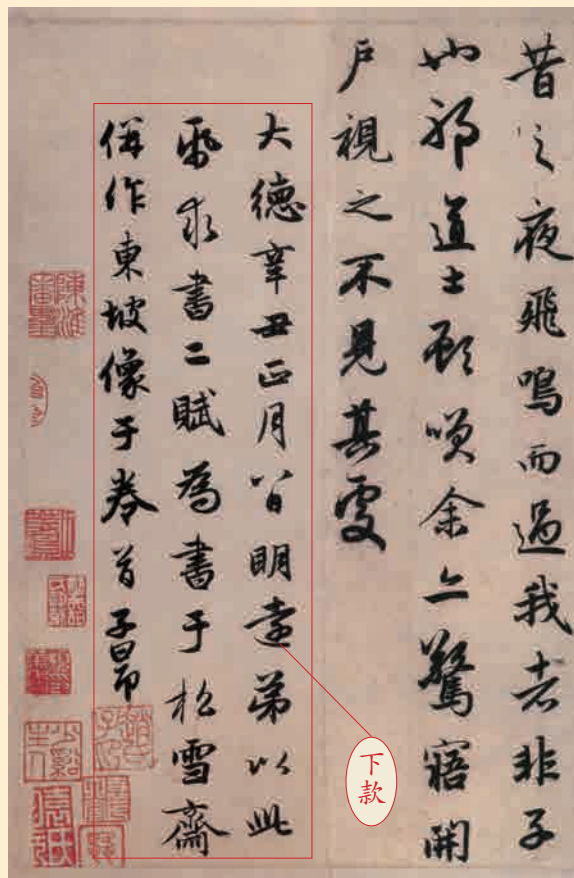 昔之夜飛鳴而過我者非子
也邪道士顧咲余亦驚寤開
戶視之不見其處
大德辛丑正月八日明遠弟以此
帋求書二賦為書于松雪齋
併作東坡像于卷首子昂
下款